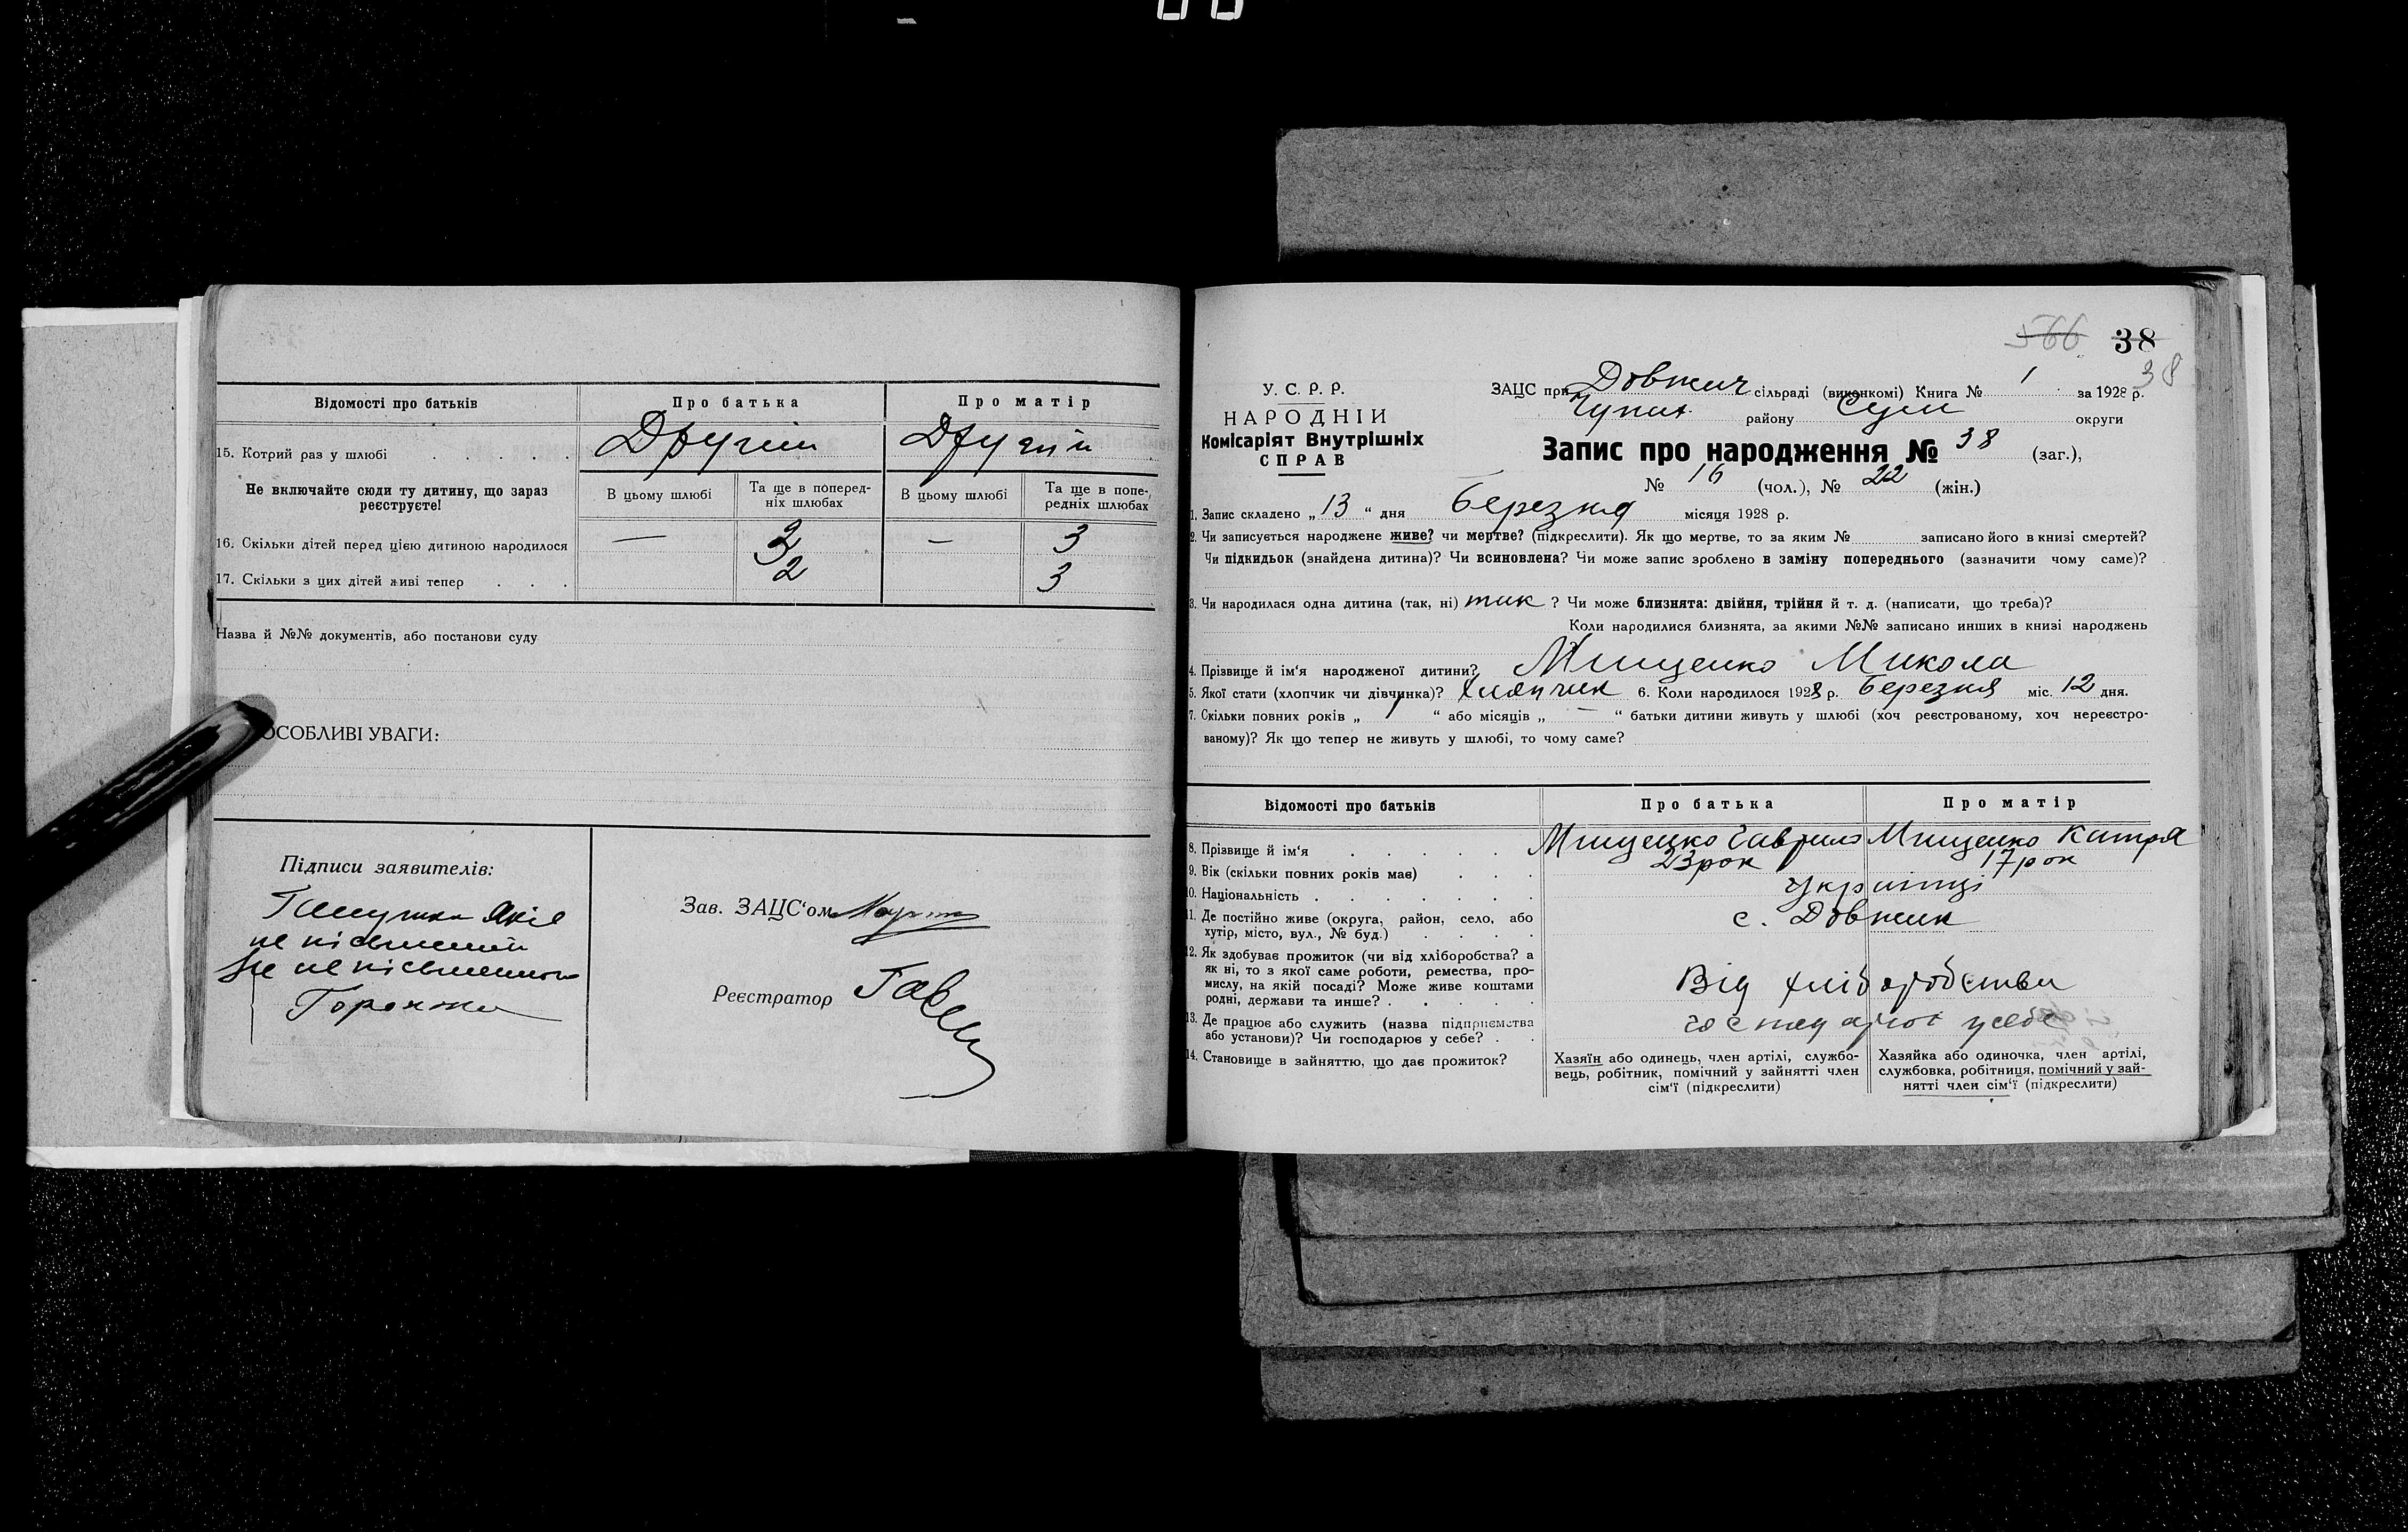 Відомості про батьків Про батька Про матір
15. Котрий раз у шлюбі . . . . . Другий Другий
Не включайте сюди ту дитину, що зараз реєструєте!
В цьому шлюбі Та ще в поперед-
ніх шлюбах В цьому шлюбі Та ще в попе-
редніх шлюбах
16. Скільки дітей перед цією дитиною народилося — 2 — 3
17. Скільки з цих дітей живі тепер . . . 2 3
Назва й №№ документів, або постанови суду
ОСОБЛИВІ УВАГИ:
Підписи заявителів:
не письменний
Зав. ЗАЦС'ом
Реєстратор
566 38
38
У. С. Р. Р.
НАРОДНІЙ
Комісаріят Внутрішніх
СПРАВ
ЗАЦС при Довжич сільраді (виконкомі) Книга № 1 за 1928 р.
Чупах. району Суми округи
Запис про народження № 38 (заг.),
№ 16 (чол.), № 22 (жін.)
1. Запис складено „ 13 “ дня березня місяця 1928 р.
2. Чи записується народжене живе? чи мертве? (підкреслити). Як що мертве, то за яким № записано його в книзі смертей?
Чи підкидьок (знайдена дитина)? Чи всиновлена? Чи може запис зроблено в заміну попереднього (зазначити чому саме)?
3. Чи народилася одна дитина (так, ні) так ? Чи може близнята: двійня, трійня й т. д. (написати, що треба)?
Коли народилися близнята, за якими №№ записано инших в книзі народжень
4. Прізвище й ім'я народженої дитини? Мищенко Микола
5. Якої стати (хлопчик чи дівчинка)? Хлопчик 6. Коли народилося 1928 р. Березня міс. 12 дня.
7. Скільки повних років „ 1 “ або місяців „ — “ батьки дитини живуть у шлюбі (хоч реєстрованому, хоч нереєстро-
ваному)? Як що тепер не живуть у шлюбі, то чому саме?
Відомості про батьків Про батька Про матір
8. Прізвище й ім'я . . . . . Мищенко Гаврило Мищенко Катря
9. Вік (скільки повних років має) . . . 23 рок 17 рок
10. Національність . . . . . . . Українці
11. Де постійно живе (округа, район, село, або
хутір, місто, вул., № буд.) . . . . с. Довжик
12. Як здобуває прожиток (чи від хліборобства? а
як ні, то з якої саме роботи, ремества, про-
мислу, на якій посаді? Може живе коштами
родні, держави та инше? . . . . . Від хліборобства
13. Де працює або служить (назва підприємства
або установи)? Чи господарює у себе? . . господарює у себе
14. Становище в зайняттю, що дає прожиток?
Хазяїн або одинець, член артілі, службо-
вець, робітник, помічний у зайнятті член
сім'ї (підкреслити)
Хазяйка або одиночка, член артілі,
службовка, робітниця, помічний у зай-
нятті член сім'ї (підкреслити)